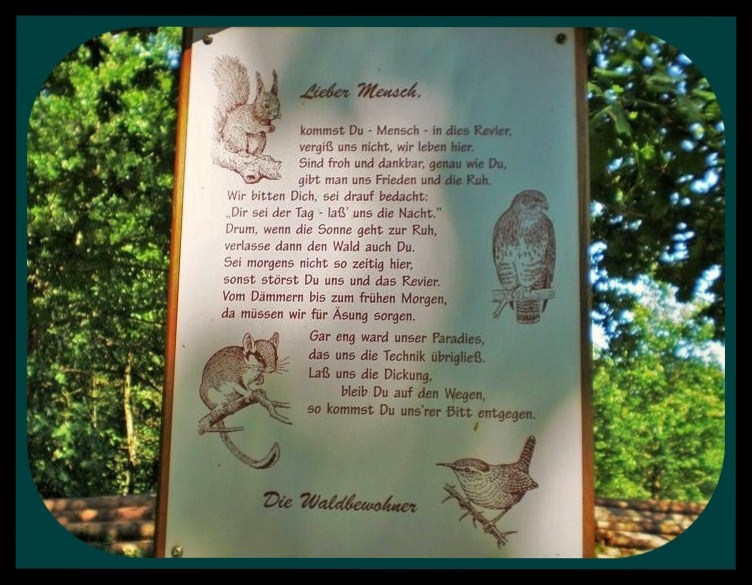 Lieber Mensch.
kommst Du - Mensch - in dies Revier,
vergiß uns nicht, wir leben hier.
Sind froh und dankbar, genau wie Du,
gibt man uns Frieden und die Ruh.
Wir bitten Dich, sei drauf bedacht:
„Dir sei der Tag - laß' uns die Nacht."
Drum, wenn die Sonne geht zur Ruh,
verlasse dann den Wald auch Du.
Sei morgens nicht so zeitig hier,
sonst störst Du uns und das Revier.
Vom Dämmern bis zum frühen Morgen,
da müssen wir für Äsung sorgen.
Gar eng ward unser Paradies,
das uns die Technik übrigließ.
Laß uns die Dickung,
bleib Du auf den Wegen,
so kommst Du uns'rer Bitt entgegen.
Die Waldbewohner